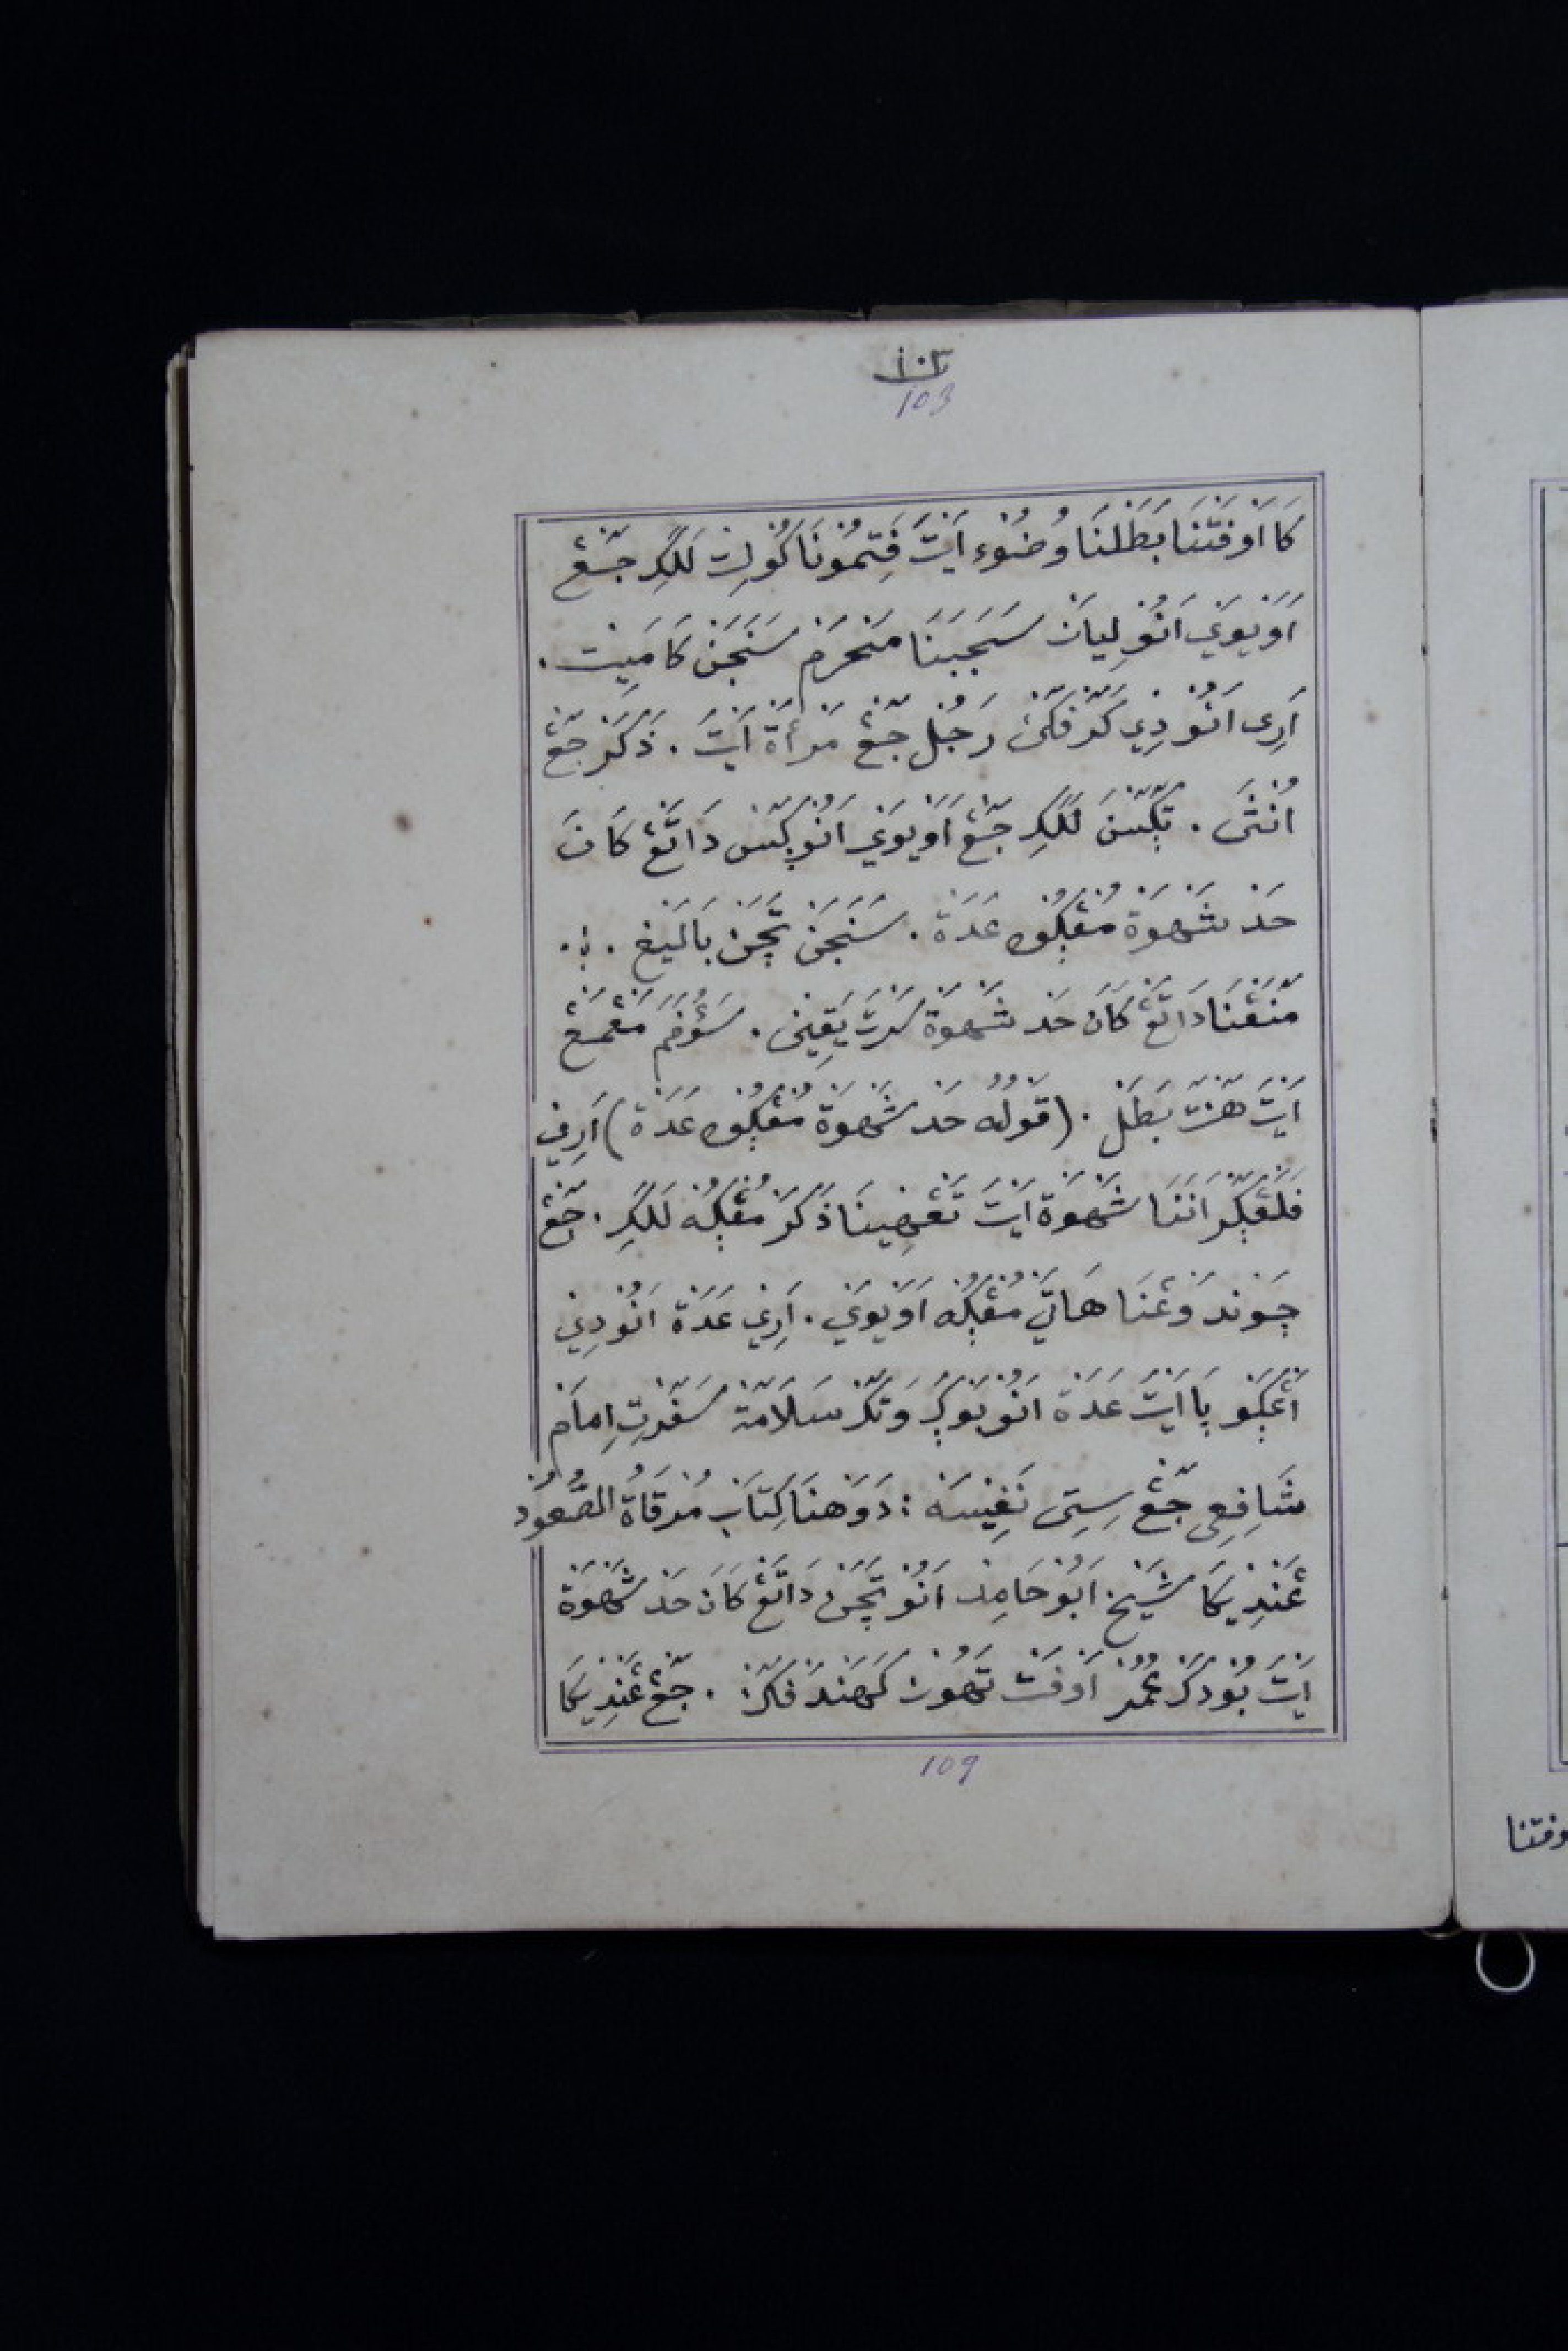 ١٠٣
103
كَا اَوْفَتْنَا بَطَلْنَا وُضُوْء اَيْتَ فَتِمُوْنَا كُوْلِتْ لَلَكِ جَڠ
اَوَيْوَيْ اَنُوْ لِيَانْ سَجَبَنَا مَحْرَمْ سَنَجَنْ كَا مَيِتْ .
اَرِى اَنُوْ دِيْ كَرْفَكَنْ رَجُلْ جَڠ مَرْأَةْ اَيْتَ . ذَكَرْ جَڠ
اُنْثَى . تݢَسْنَ لَلَكِ جَڠ اَوَيْوَيْ اَنُوْ ݢَسْ دَاتَڠْ كَانَ
حَدْ شَهْوَةْ مُڠݢُوْهْ عَدَةْ . سَنَجَنْ تَچَنْ بَالَيْغ .
مَنَڠْنَا دَاتَڠْ كَانَ حَدْ شَهْوَةْ سَرَتَ يَقِيْن . سَوُفَمَ مَڠْمَڠ
اَيْتَ هَنْتَ بَطَلْ . (قَوْلُهُ حَدْ شَهْوَةْ مُڠݢُوْهْ عَدَةْ) اَرِيْ
فَلَڠݢَرَانَنَا شَهْوَةْ اَيْتَ تَڠْهِيْنَا ذَكَرْ مُڠݢُهْ لَلَكِ . جَڠ
چَوْندَوَڠْنَا هَاتَيْ مُڠݢُهْ اَوَيْوَيْ . اَرِيْ عَدَةْ اَنُوْ دِيْ
اَڠݢَوْ پَا اَيْتَ عَدَةْ اَنُوْ بَوݢَ وَتَكْ سَلَامَةْ سَفَرْتِ اِمَامْ
شَافِعِى جَڠ سِتِى نَفِيْسَه : دَوَهْنَا كِتَابْ مُرْقَاةُ الصُّعُوْد
ڠَنْدِيْكَا شَيْخْ اَبُوْ حَامِدْ اَنُوْ تَچَنْ دَاتَڠْ كَانَ حَدْ شَهْوَةْ
اَيْتَ بُوْدَكْ عُمُرْ اَوْفَتْ تَهُوْنْ كَهَنْدَفَكَنْ . جَڠ ڠَنْدِيْكَا
109
وفتنا